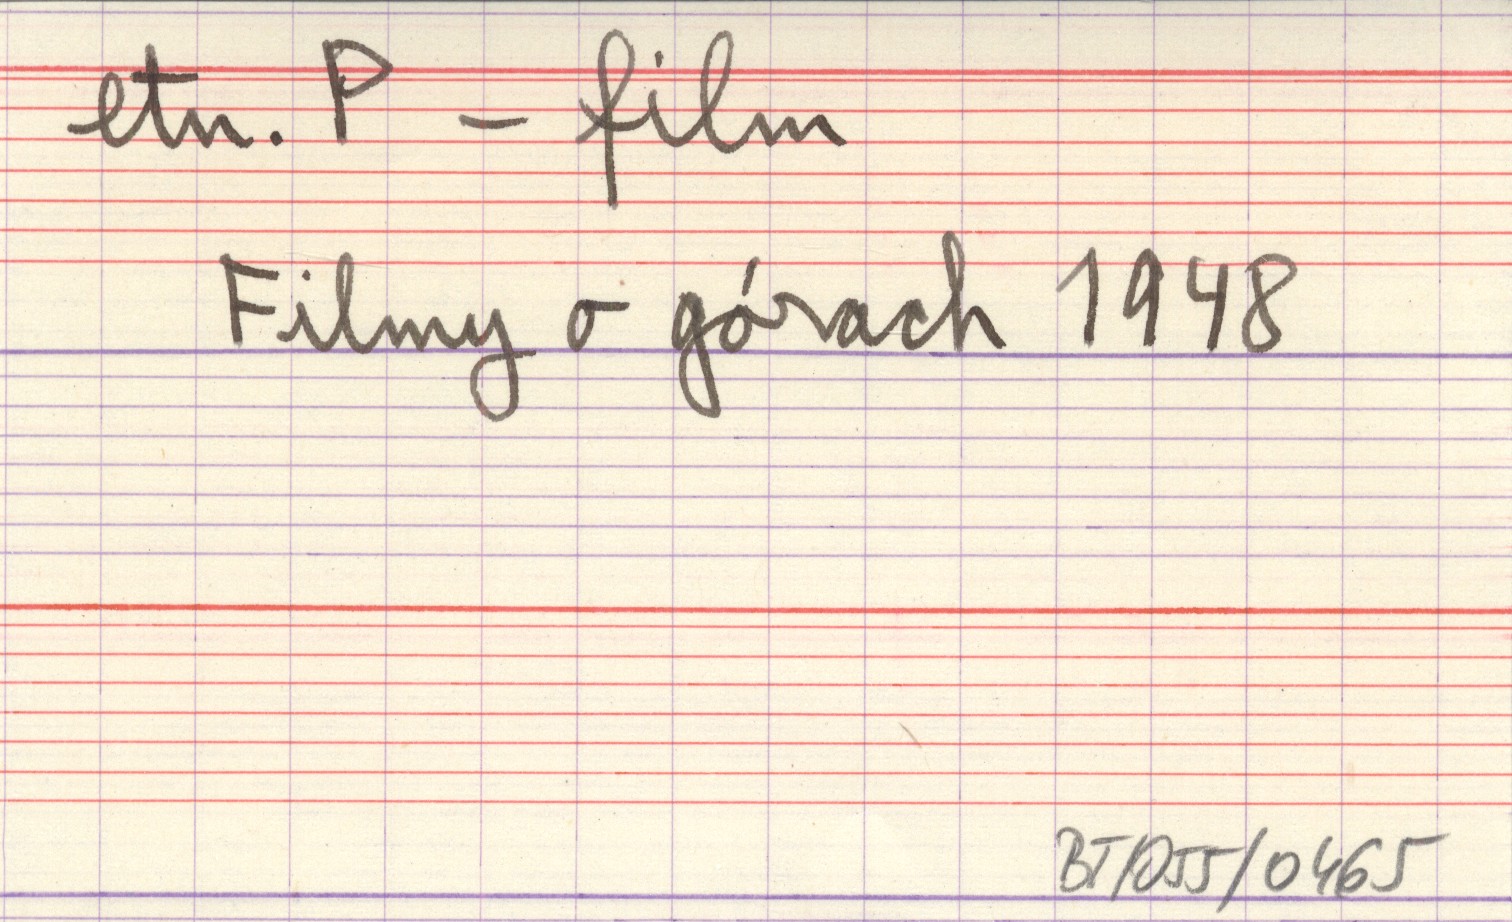 etn. P - film
Filmy o górach 1948
BT/055/0465